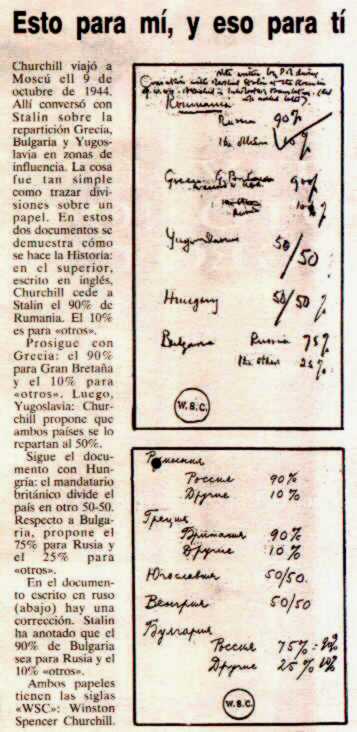 Esto para mí, y eso para tí
Churchill viajó a
Moscú ell 9 de
octubre de 1944.
Allí conversó con
Stalin sobre la
repartición Grecia,
Bulgaria y Yugos-
lavia en zonas de
influencia. La cosa
fue tan simple
como trazar divi-
siones sobre un
papel. En estos
dos documentos se
demuestra cómo
se hace la Historia:
en el superior,
escrito en inglés,
Churchill cede a
Stalin el 90% de
Rumania. El 10%
es para «otros».
Prosigue con
Grecia: el 90%
para Gran Bretaña
y el 10% para
«otros». Luego,
Yugoslavia: Chur-
chill propone que
ambos países se lo
repartan al 50%.
Sigue el docu-
mento con Hun-
gría: el mandatario
británico divide el
país en otro 50-50.
Respecto a Bulga-
ria, propone el
75% para Rusia y
el 25% para
«otros».
En el documen-
to escrito en ruso
(abajo) hay una
corrección. Stalin
ha anotado que el
90% de Bulgaria
sea para Rusia y el
10% «otros».
Ambos papeles
tienen las siglas
«WSC»: Winston
Spencer Churchill.
Note written by
Roumania
Russia 90%
The others 10%
Greece G. Britain
90%
Russia
10%
Yugoslavia 50/50
Hungary 50/50%
Bulgaria Russia 75%
the other 25%
W.S.C.
Румыния
Россия 90%
Другие 10%
Греция
Британия 90%
Другие 10%
Югославия 50/50.
Венгрия 50/50
Булгария
Россия 75%
Другие 25% 10%
W.S.C.